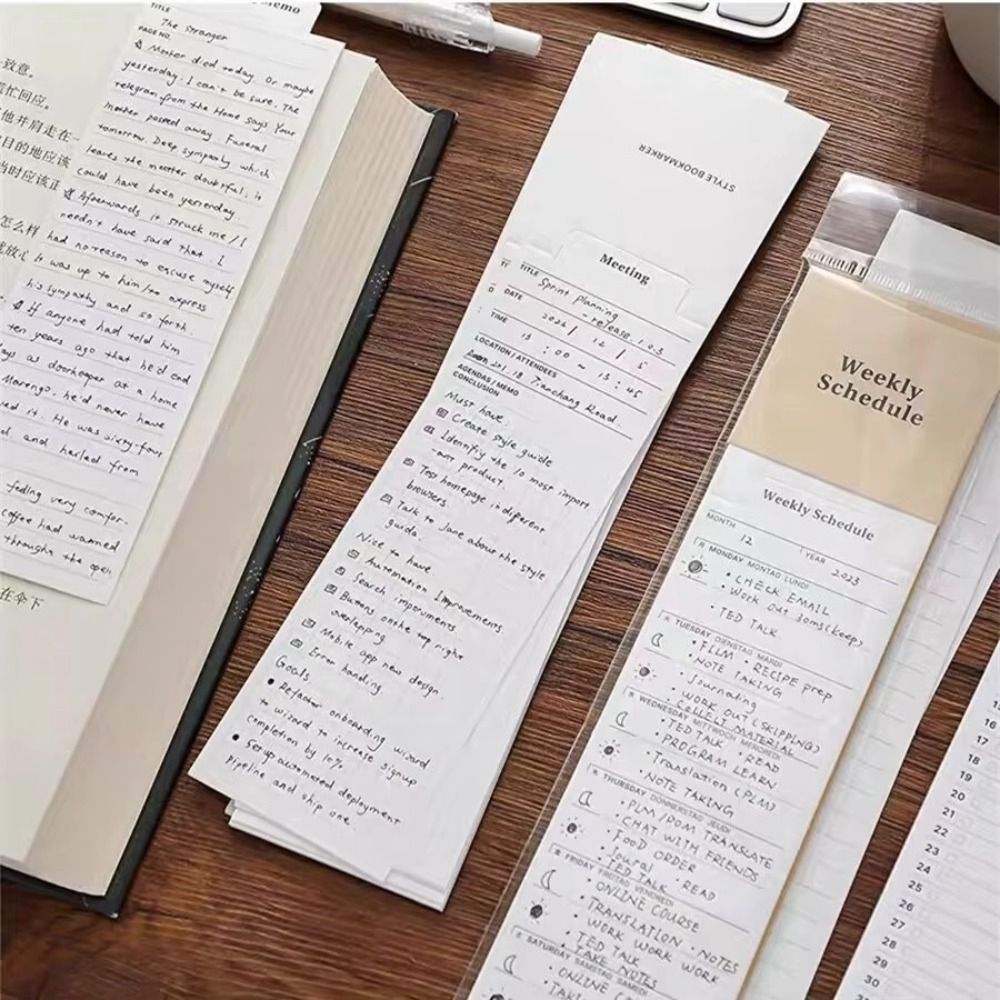 Memo
TITLE
The Stranger
PAGE NO.
Mother died today. or maybe
yesterday; I can't be sure. The
telegram from the Home says Your
mother passed away. Funeral
tomorrow. Deep sympathy which
leaves the matter doubtful; it
could have been yesterday.
Afterwards it struck me / I
needn't have said that. I
had no reason to excuse myself
It was up to him / to express
his sympathy and so forth.
If anyone had told him
ten years ago that he'd end
as doorkeeper at a home
Marengo, he'd never have
ed it. He was sixty-four
and hailed from
feeling very comfor-
coffee had warmed
through the open
致意。
忙回应。
他并肩走在一
目的地应该
当时应该正
怎么样
就放心
在伞下
STYLE BOOKMARKER
Meeting
TITLE Sprint Planning
- release. 1.0.3
DATE 2024 / 12 / 5
TIME 13 : 00 ~ 13 : 45
LOCATION / ATTENDEES
Room 201, 18 Tianchang Road.
AGENDAS / MEMO
CONCLUSION
Must have.
Create style guide
Identify the 10 most import
-ant product.
Test homepage in different
browsers.
Talk to Jane about the style
guide.
Nice to have
Automation Improvements.
Search improvements
Buttons on the top right
overlapping
Mobile app new design.
Error handing
Goals.
Refactor onboarding wizard
to wizard to increase signup
completion by 10%.
Set up automated deployment
Pipeline and ship one.
Weekly
Schedule
Weekly Schedule
MONTH 12 YEAR 2023
MONDAY MONTAG LUNDI
• CHECK EMAIL
• Work out 30ms (keep)
• TED TALK
TUESDAY DIENSTAG MARDI
• FILM • RECIPE prep
• NOTE TAKING
• Journaling
• WORK OUT (SKIPPING)
• COLLELT MATERIAL
WEDNESDAY MITTWOCH MERCREDI
• TED TALK • READ
• PROGRAM LEARN
• Translation (PLM)
• NOTE TAKING
THURSDAY DONNERSTAG JEUDI
• PLM/DOM TRANSLATE
• CHAT WITH FRIENDS
• FOOD ORDER
• Joural
• TED TALK • READ
FRIDAY FREITAG VENDREDI
• ONLINE COURSE
• TRANSLATION • NOTES
• WORK WORK WORK
• TED TALK
• TAKE NOTES
SATURDAY SAMSTAG SAMEDI
• ONLINE
15
16
17
18
19
20
21
22
23
24
25
26
27
28
29
30